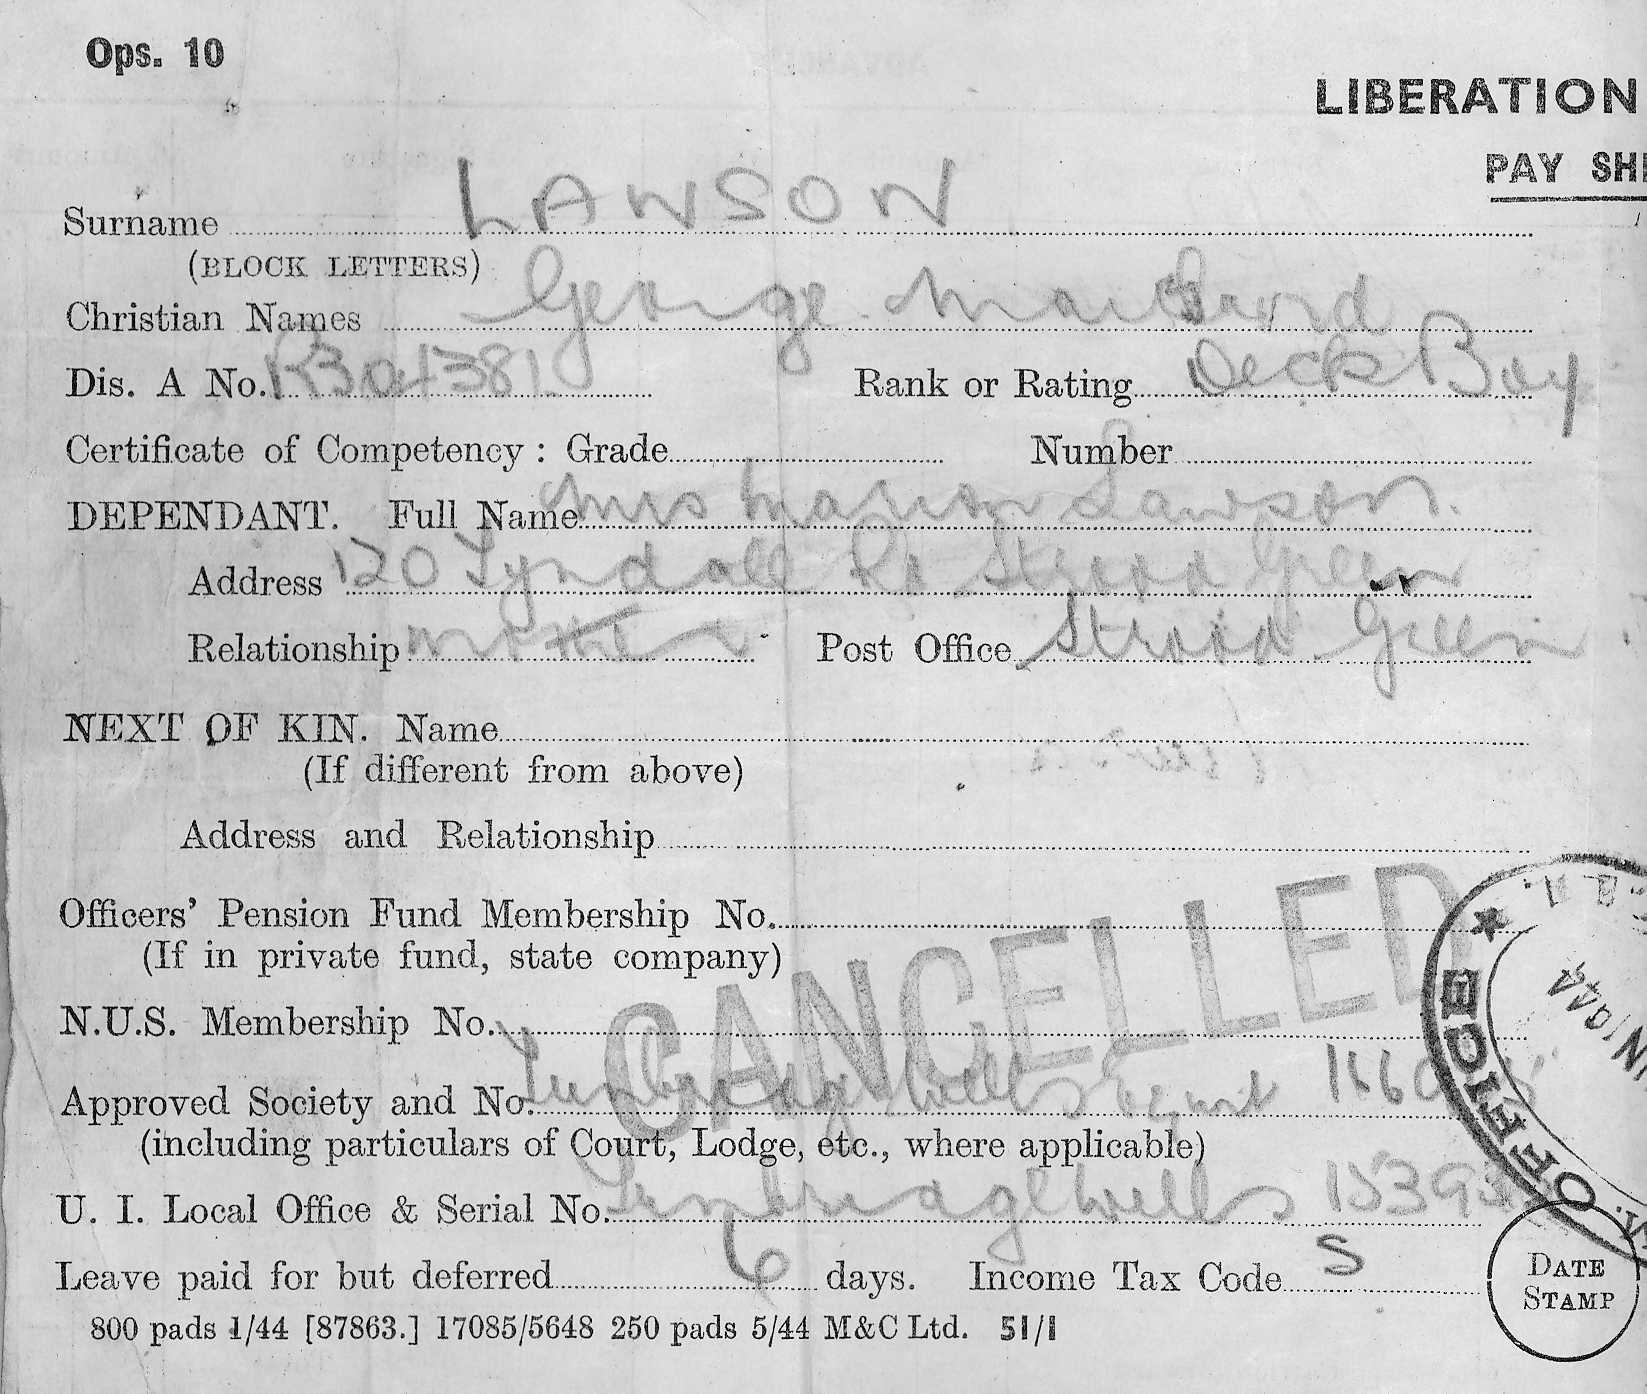 Ops. 10
LIBERATION
PAY SH
Surname LAWSON
(BLOCK LETTERS)
Christian Names George
Dis. A No. R304381 Rank or Rating Deck Boy
Certificate of Competency : Grade Number
DEPENDANT. Full Name Mrs Marion Lawson.
Address 120 Tyndall Rd Stroud Green
Relationship mother Post Office Stroud Green
NEXT OF KIN. Name
(If different from above)
Address and Relationship
Officers' Pension Fund Membership No.
(If in private fund, state company)
CANCELLED
N.U.S. Membership No.
Approved Society and No. Tunbridge Wells
(including particulars of Court, Lodge, etc., where applicable)
U. I. Local Office & Serial No. Tunbridge Wells
Leave paid for but deferred 6 days. Income Tax Code S
OFFICE
DATE
STAMP
800 pads 1/44 [87863.] 17085/5648 250 pads 5/44 M&C Ltd. 51/1